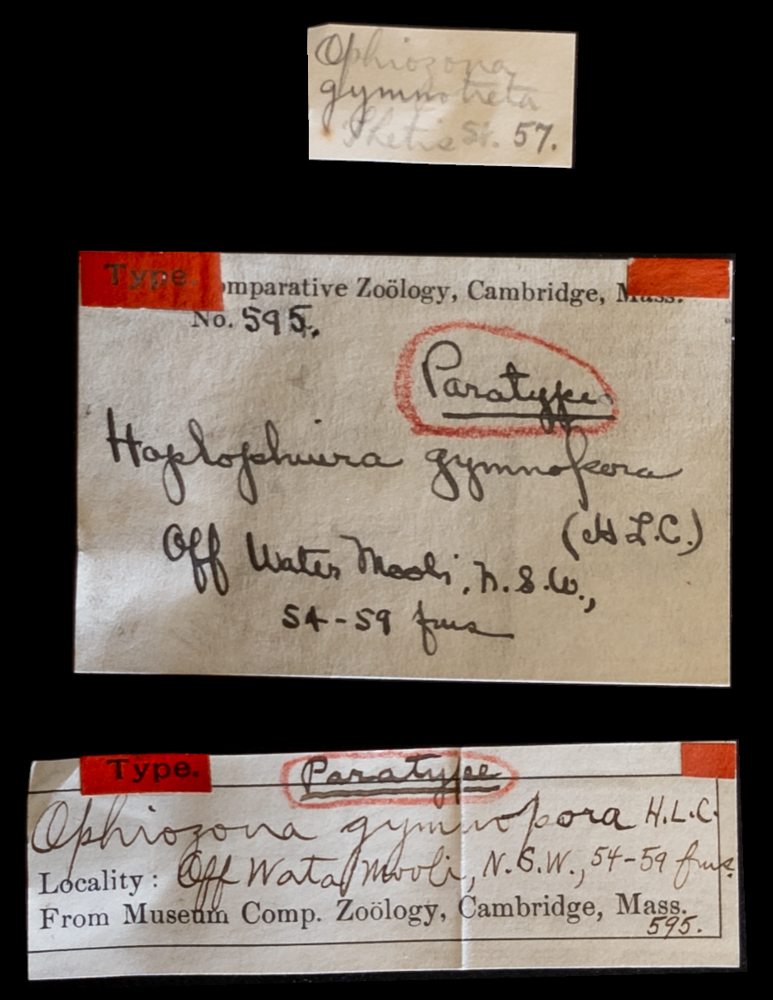 Ophiozona
gymnotreta
Thetis St. 57.
Type.
omparative Zoölogy, Cambridge, Mass.
No. 595.
Paratype
Haplophiura gymnopora
(H.L.C.)
Off Water Mooli, N.S.W.,
54-59 fms
Type.
Paratype
Ophiozona gymnopora H.L.C.
Locality: Off Wata Mooli, N.S.W., 54-59 fms.
From Museum Comp. Zoölogy, Cambridge, Mass.
595.